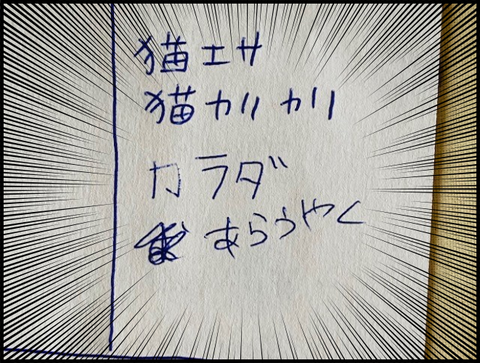 猫エサ
猫カリカリ
カラダ
あらうやく